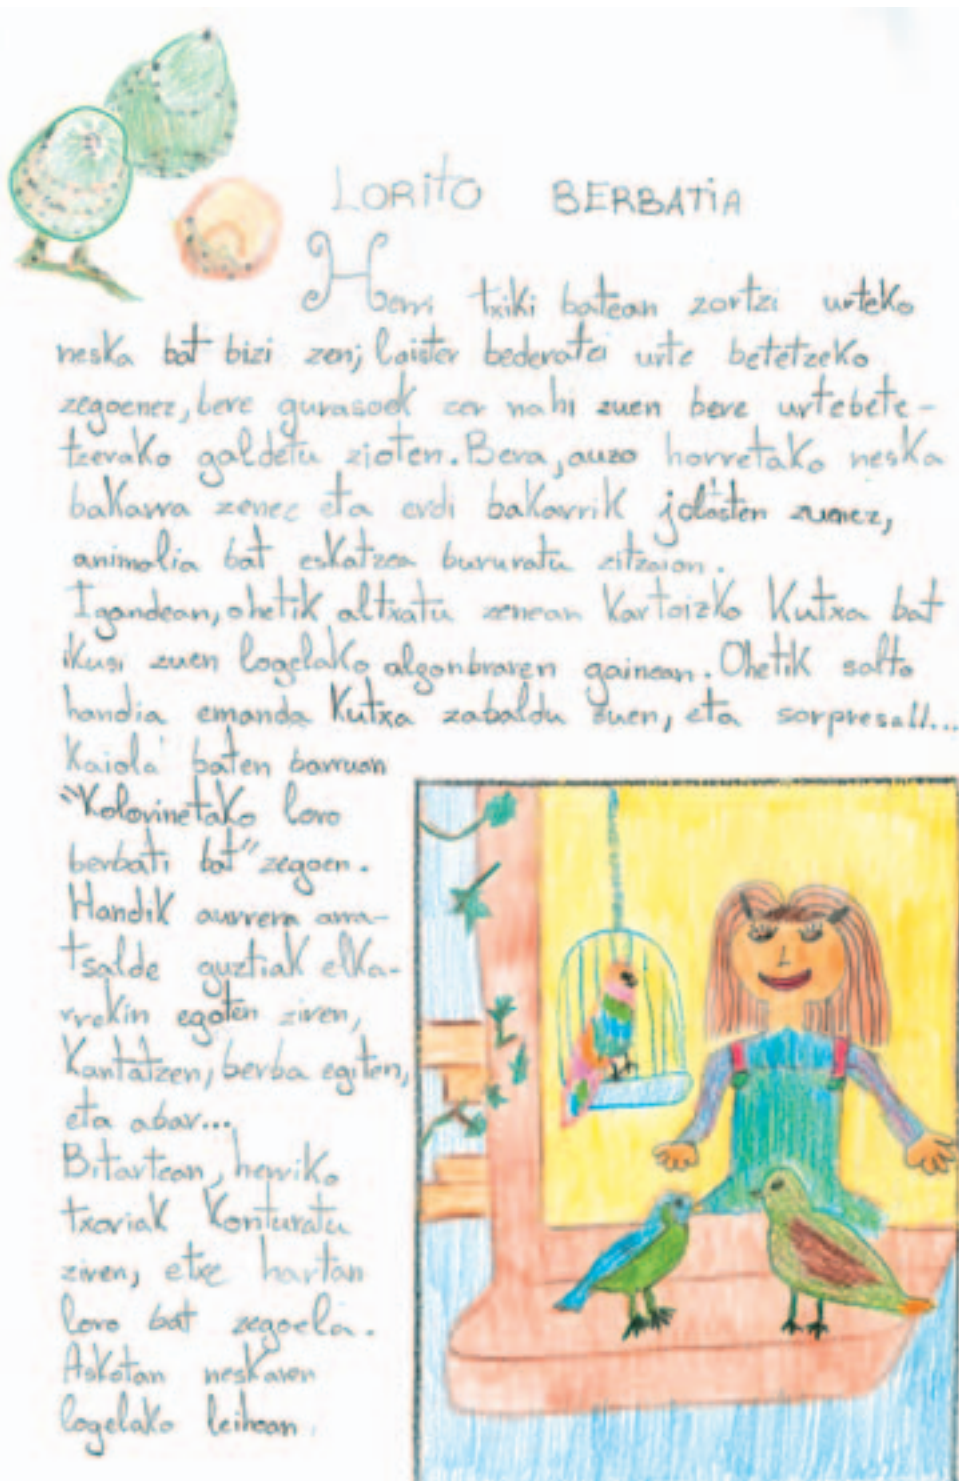 LORITO BERBATIA
Herri txiki batean zortzi urteko
neska bat bizi zen; laister bederatzi urte betetzeko
zegoenez, bere gurasoek zer nahi zuen bere urtebete-
tzerako galdetu zioten. Bera, auzo horretako neska
bakarra zenez eta erdi bakarrik jolasten zunez,
animalia bat eskatzea bururatu zitzaion.
Igandean, ohetik altxatu zenean Kartoizko Kutxa bat
ikusi zuen logelako algonbraren gainean. Ohetik salto
handia emanda Kutxa zabaldu zuen, eta sorpresa!!...
Kaiola baten barruan
"Kolorinetako loro
berbati bat" zegoen.
Handik aurrera arra-
tsalde guztiak elka-
rrekin egoten ziren,
Kantatzen, berba egiten,
eta abar...
Bitartean, herriko
txoriak Konturatu
ziren, etxe hartan
loro bat zegoela.
Askotan neskaren
logelako leihoan.